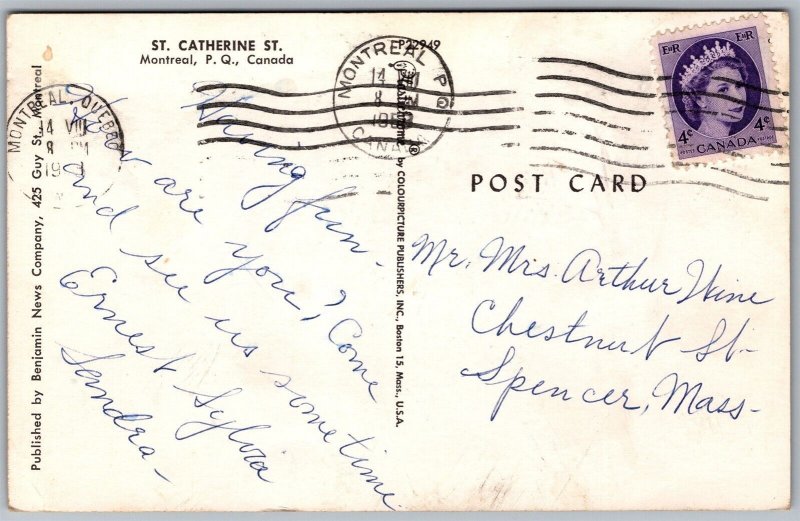 ST. CATHERINE ST.
Montreal, P. Q., Canada
P22949
MONTREAL P.Q.
14
8
CANADA
MONTREAL, QUEBEC
14 VIII
8 PM
19
EIIR EIIR
4¢ 4¢
CANADA
POST CARD
Published by Benjamin News Company, 425 Guy St., Montreal
by COLOURPICTURE PUBLISHERS, INC., Boston 15, Mass., U.S.A.
®
Having fun –
How are you? Come
and see us sometime.
Ernest Sylvia
Sandra –
Mr. Mrs. Arthur Wine
Chestnut St –
Spencer, Mass –